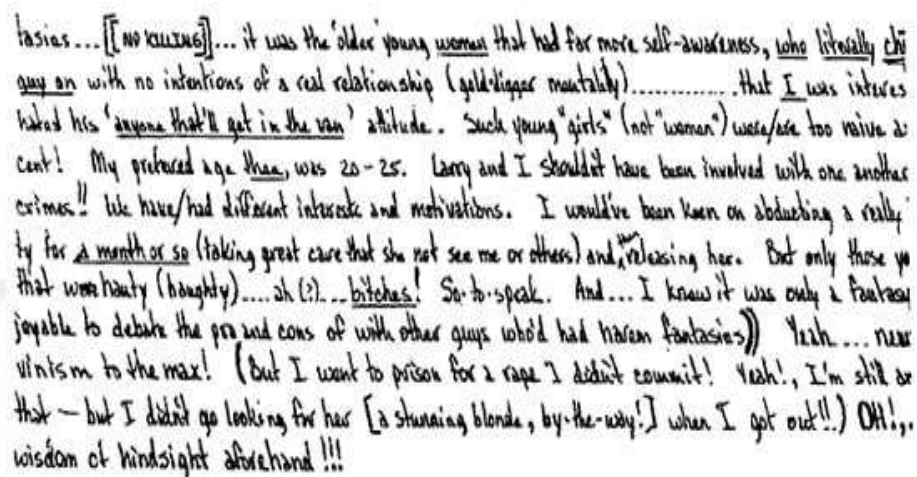 tasies ... [[NO KILLING]] ... it was the 'older' young women that had far more self-awareness, who literally
guy on with no intentions of a real relationship (gold-digger mentality) .............. that I was interes
hated his 'anyone that'll get in the van' attitude. Such young "girls" (not "women") were/are too naive
cent! My prefered age then, was 20-25. Larry and I shouldn't have been involved with one another
crimes!! We have/had different interests and motivations. I would've been keen on abducting a really
ty for a month or so (taking great care that she not see me or others) and, then, releasing her. But only those yo
that were hauty (haughty) .... ah (?) .... bitches! So-to-speak. And ... I knew it was only a fantasy
joyable to debate the pro and cons of with other guys who'd had harem fantasies)) Yeah .... near
vinism to the max! (But I went to prison for a rape I didn't commit! Yeah!, I'm still
that — but I didn't go looking for her [a stunning blonde, by-the-way!] when I got out!!.) OH!,.
wisdom of hindsight aforehand!!!